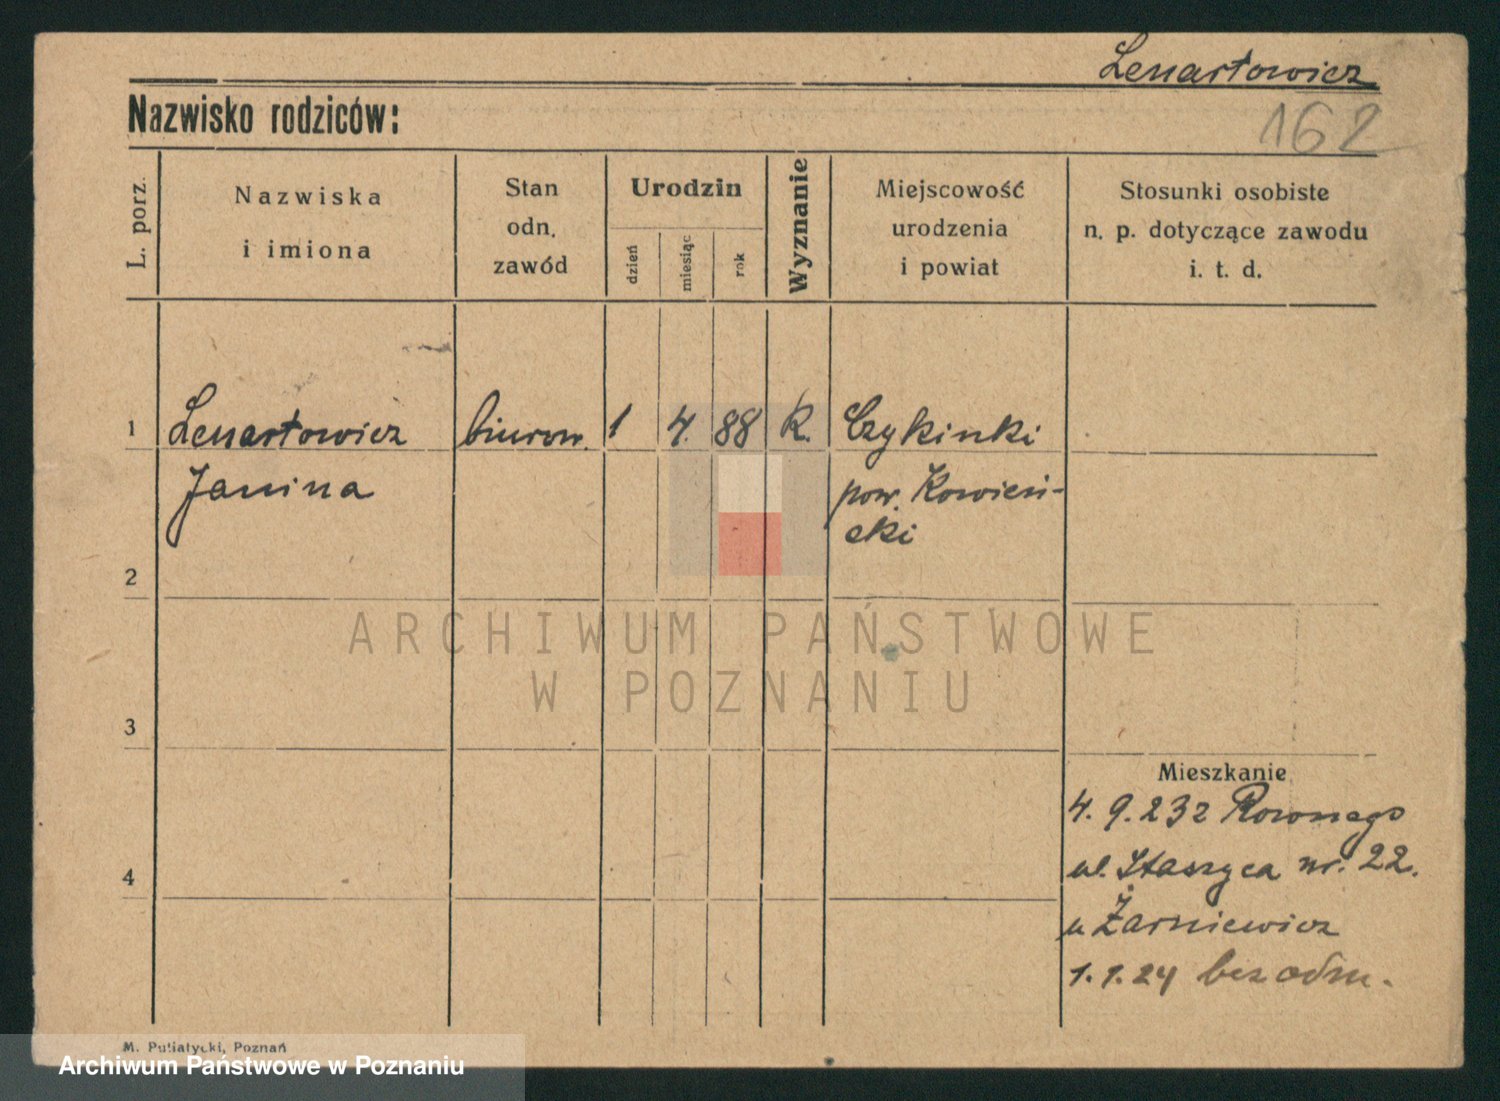 Lenartowicz
Nazwisko rodziców:
162
L. porz.
Nazwiska
i imiona
Stan
odn.
zawód
Urodzin
dzień
miesiąc
rok
Wyznanie
Miejscowość
urodzenia
i powiat
Stosunki osobiste
n. p. dotyczące zawodu
i. t. d.
1 Lenartowicz biurow. 1 4. 88 R. Czykinki
Janina pow. Kowień-
ski
2
ARCHIWUM PAŃSTWOWE
W POZNANIU
3
Mieszkanie
4. 9. 23 z Rownego
ul. Staszyca nr. 22.
4
u Żarniewicz
1.1.24 bez odm.
M. Putiatycki, Poznań
Archiwum Państwowe w Poznaniu